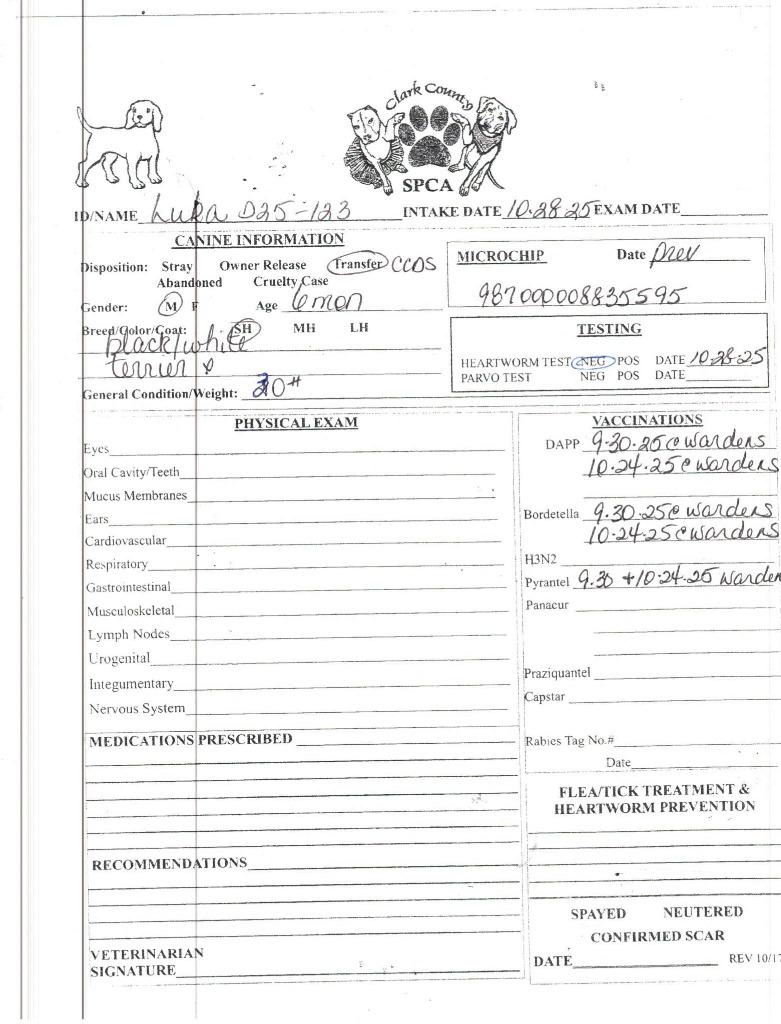 Clark County
SPCA
ID/NAME Luka D25-123 INTAKE DATE 10.28.25 EXAM DATE
CANINE INFORMATION
Disposition: Stray Owner Release Transfer CCDS
Abandoned Cruelty Case
Gender: M F Age 6 mon
Breed/Color/Coat: SH MH LH
black/white
terrier
General Condition/Weight: 30#
MICROCHIP Date prev
987000008835595
TESTING
HEARTWORM TEST NEG POS DATE 10.28.25
PARVO TEST NEG POS DATE
PHYSICAL EXAM
Eyes
Oral Cavity/Teeth
Mucus Membranes
Ears
Cardiovascular
Respiratory
Gastrointestinal
Musculoskeletal
Lymph Nodes
Urogenital
Integumentary
Nervous System
MEDICATIONS PRESCRIBED
RECOMMENDATIONS
VETERINARIAN
SIGNATURE
VACCINATIONS
DAPP 9.30.25 @ wardens
10.24.25 @ wardens
Bordetella 9.30.25 @ wardens
10.24.25 @ wardens
H3N2
Pyrantel 9.30 + 10.24.25 warden
Panacur
Praziquantel
Capstar
Rabies Tag No.#
Date
FLEA/TICK TREATMENT &
HEARTWORM PREVENTION
SPAYED NEUTERED
CONFIRMED SCAR
DATE REV 10/17